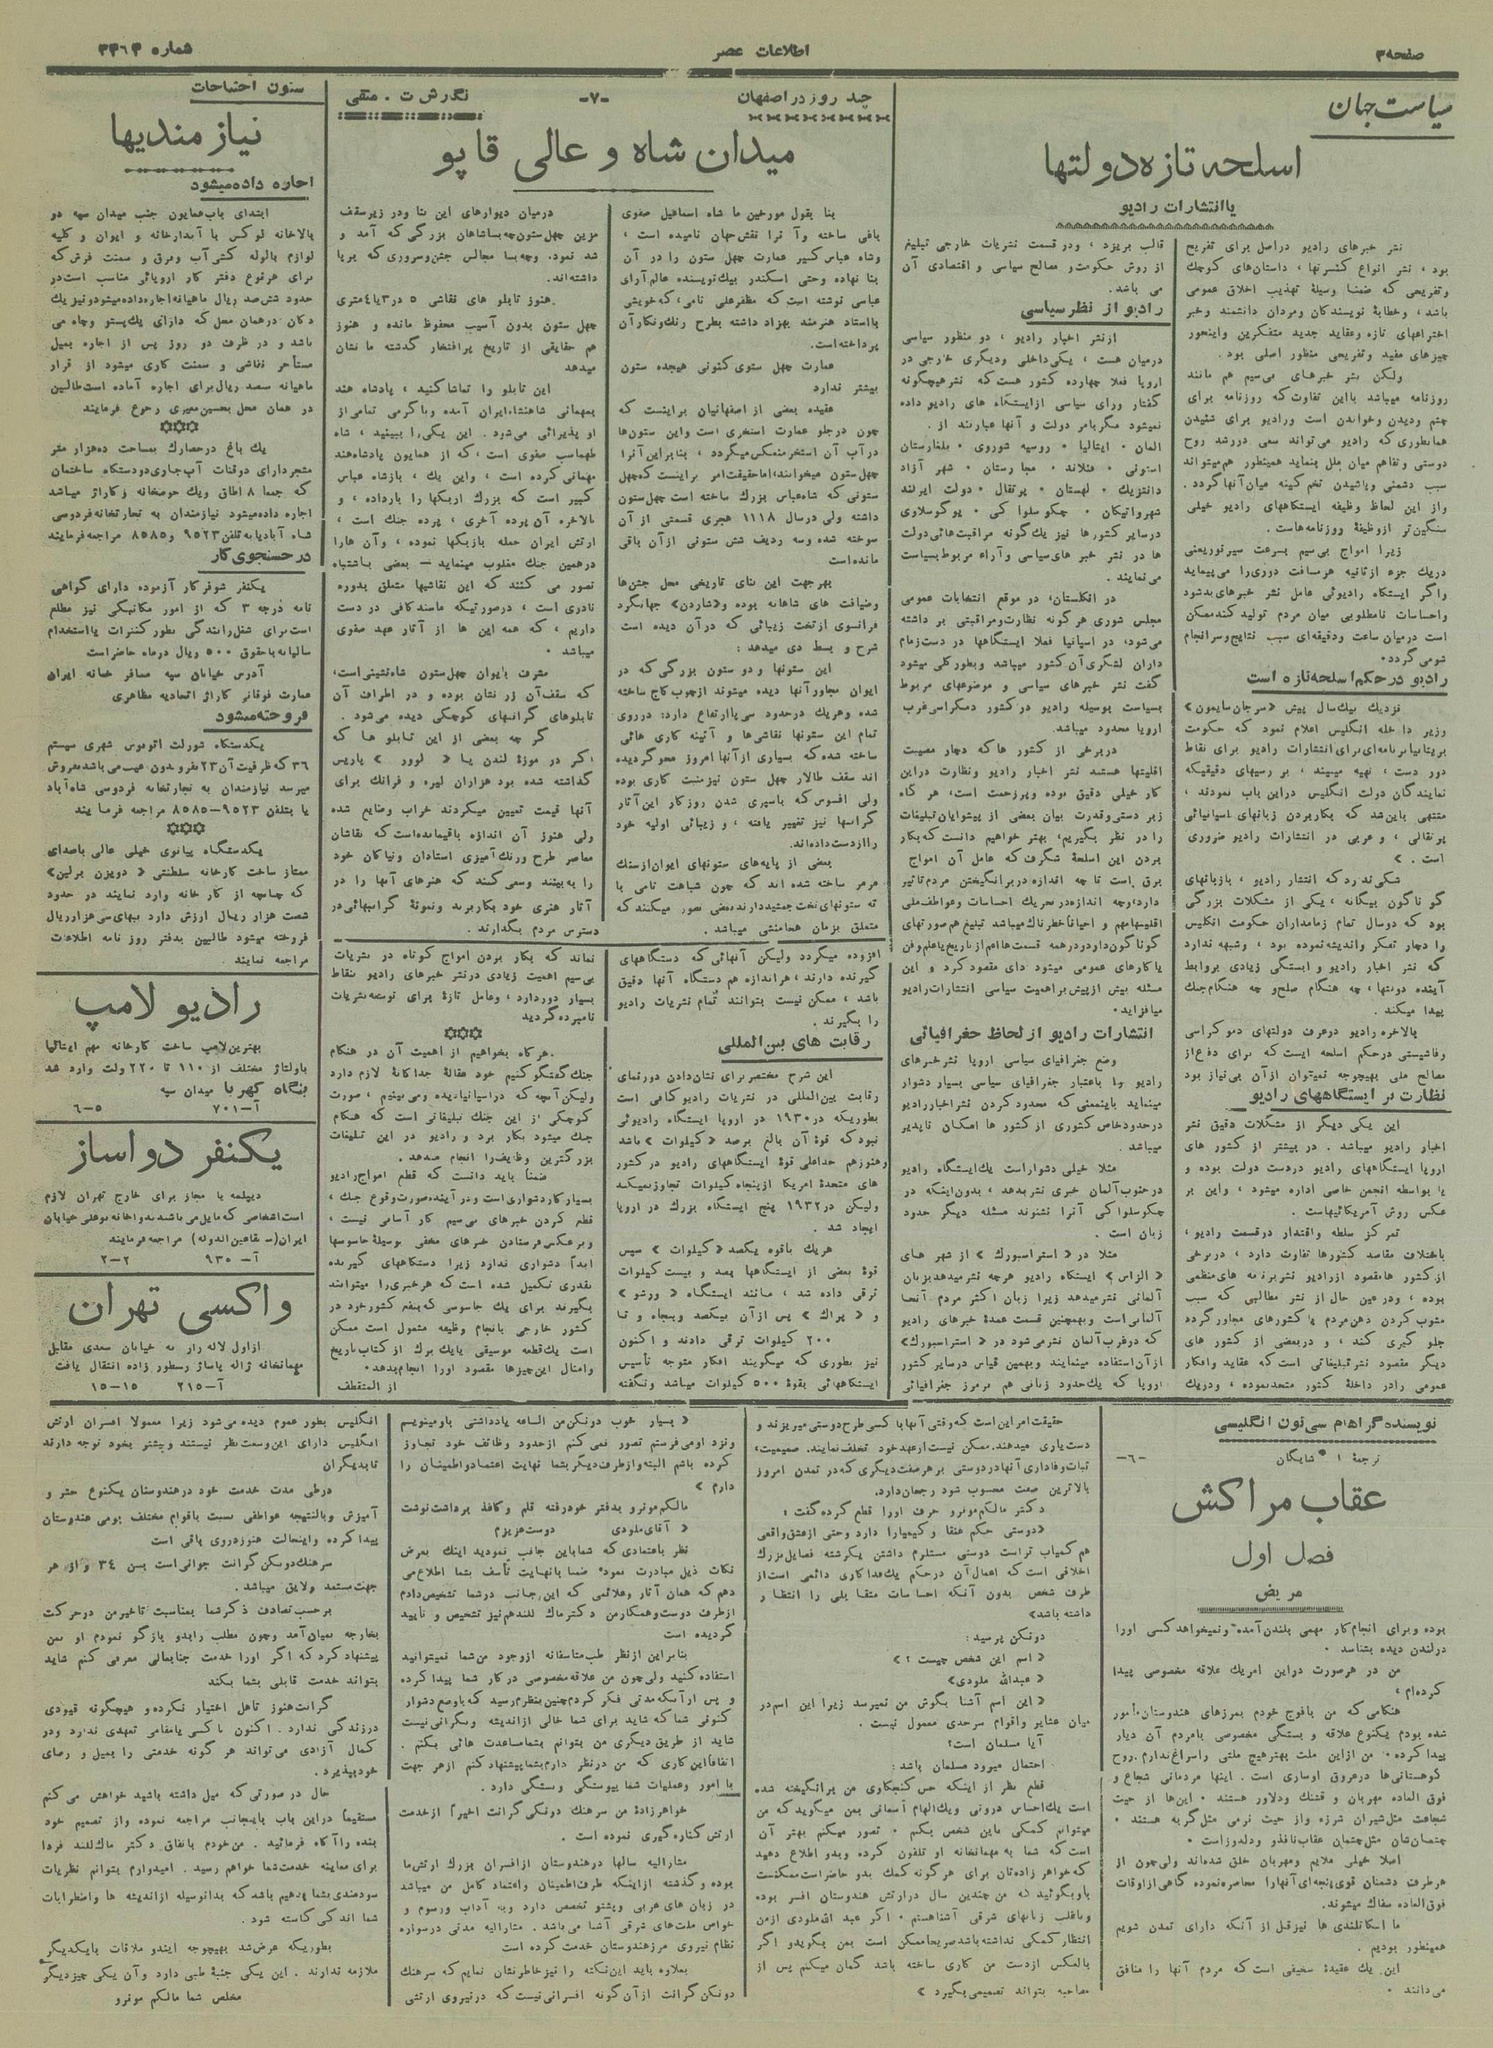 صفحه ۳
اطلاعات عصر
شماره ۳۳۶۳
سیاست جهان
اسلحه تازه دولتها
یا انتشارات رادیو
نشر خبرهای رادیو دراصل برای تفریح
بود ، نشر انواع کنسرتها ، داستان‌های کوچك
وتفریحی که ضمناً وسیلهٔ تهذیب اخلاق عمومی
باشد ، وخطابهٔ نویسندگان ومردان دانشمند وخبر
اختراعهای تازه وعقاید جدید متفکرین واینجور
چیزهای مفید وتفریحی منظور اصلی بود .
ولکن نشر خبرهای بی‌سیم هم مانند
روزنامه میباشد بااین تفاوت که روزنامه برای
چشم ودیدن وخواندن است ورادیو برای شنیدن
همانطوری که رادیو می‌تواند سعی درنشر روح
دوستی وتفاهم میان ملل بنماید همینطور هم میتواند
سبب دشمنی وپاشیدن تخم کینه میان آنها گردد.
واز این لحاظ وظیفه ایستگاههای رادیو خیلی
سنگین تر ازوظیفهٔ روزنامه هاست.
زیرا امواج بی‌سیم بسرعت سیرنوریعنی
دریك جزء ازثانیه هرمسافت دوری‌را می‌پیماید
واگر ایستگاه رادیوئی عامل نشر خبرهای بدشود
واحساسات نامطلوبی میان مردم تولید کندممکن
است درمیان ساعت ودقیقه‌ای سبب نتایج وسرانجام
شومی گردد.
رادیو درحکم اسلحه تازه است
نزدیك بیك‌سال پیش «سرجان سایمون»
وزیر داخله انگلیس اعلام نمود که حکومت
بریتانیا برنامه‌ای برای انتشارات رادیو برای نقاط
دور دست ، تهیه میبیند ، بررسیهای دقیقیکه
نمایندگان دولت انگلیس دراین باب نمودند ،
منتهی باین شد که بکاربردن زبانهای اسپانیائی
پرتقالی ، و عربی در انتشارات رادیو ضروری
است . »
شکی ندرد که انتشار رادیو ، بازبانهای
گو ناگون بیگانه ، یکی از مشکلات بزرگی
بود که دوسال تمام زمامداران حکومت انگلیس
را دچار تفکر واندیشه نموده بود ، وشبهه ندارد
که نشر اخبار رادیو و ابستگی زیادی بروابط
آینده دولتها ، چه هنگام صلح و چه هنگام جنك
پیدا میکند .
بالاخره رادیو درعرف دولتهای دموکراسی
وفاشیستی درحکم اسلحه ایست که برای دفاع از
مصالح ملی بهیچوجه نمیتوان ازآن بی‌نیاز بود
نظارت بر ایستگاههای رادیو
این یکی دیگر از مشکلات دقیق نشر
اخبار رادیو میباشد . در بیشتر از کشور های
اروپا ایستگاههای رادیو دردست دولت بوده و
یا بواسطه انجمن خاصی اداره میشود ، واین بر
عکس روش آمریکائیهاست .
تمر کز سلطه واقتدار درقسمت رادیو ،
باختلاف مقاصد کشورها تفاوت دارد ، دربرخی
ازکشور هامقصود ازرادیو نشربرنامه های منظمی
بوده ، ودرعین حال از نشر مطالبی که سبب
مشوب کردن ذهن مردم یا کشورهای مجاورگردد
جلو گیری کنند ، و دربعضی از کشور های
دیگر مقصود نشرتبلیغاتی است که عقاید وافکار
عمومی رادر داخلهٔ کشور متحدنموده ، ودریك
قالب بریزد ، ودر قسمت نشریات خارجی تبلیغ
از روش حکومت و مصالح سیاسی و اقتصادی آن
می باشد .
رادیو از نظر سیاسی
ازنشر اخبار رادیو ، دو منظور سیاسی
درمیان هست ، یکی‌داخلی ودیگری خارجی در
اروپا فعلا چهارده کشور هست که نشر هیچگونه
گفتار ورای سیاسی ازایستگاه های رادیو داده
نمیشود مگر بامر دولت و آنها عبارتند از .
آلمان . ایتالیا . روسیه شوروی . بلغارستان
استونی . فنلاند . مجارستان . شهر آزاد
دانتزیك . لهستان . پرتقال . دولت ایرلند
شهرواتیکان . چکوسلوا کی . یوگوسلاوی
درسایر کشورها نیز یك گونه مراقبت هائی دولت
ها در نشر خبر های سیاسی و آراء مربوط بسیاست
می نمایند .
در انگلستان، در موقع انتخابات عمومی
مجلس شوری هر گونه نظارت و مراقبتی بر داشته
می‌شود، در اسپانیا فعلا ایستگاهها در دست زمام
داران لشگری آن کشور میباشد و بطور کلی میشود
گفت نشر خبرهای سیاسی و موضوعهای مربوط
بسیاست بوسیله رادیو در کشور دمکراسی غرب
اروپا محدود میباشد.
دربرخی از کشور ها که دچار مصیبت
اقلیتها هستند نشر اخبار رادیو ونظارت دراین
کار خیلی دقیق بوده وپرزحمت است، هر گاه
زبر دستی وقدرت بیان بعضی از پیشوایان تبلیغات
را در نظر بگیریم، بهتر خواهیم دانست که بکار
بردن این اسلحهٔ شگرف که عامل آن امواج
برق است تا چه اندازه دربرانگیختن مردم تاثیر
دارد، وچه اندازه درتحریك احساسات وعواطف ملی
اقلیتها مهم و احیاناً خطرناك میباشد تبلیغ هم صورتهای
گوناگون دارد در همه قسمت ها اعم از تاریخ یا علم و فن
یا کارهای عمومی میشود دای مقصود کرد و این
مسئله بیش ازپیش براهمیت سیاسی انتشارات رادیو
میافزاید.
انتشارات رادیو از لحاظ جغرافیائی
وضع جغرافیای سیاسی اروپا نشرخبرهای
رادیو را باعتبار جغرافیای سیاسی بسیار دشوار
مینماید باینمعنی که محدود کردن نشر اخبار رادیو
در حدودخاص کشوری از کشور ها امکان ناپذیر
میباشد.
مثلا خیلی دشواراست یك ایستگاه رادیو
درجنوب آلمان خبری نشر بدهد ، بدون اینکه در
چکوسلواکی آنرا نشنوند مسئله دیگر حدود
زبان است .
مثلا در « استراسبورك » از شهر های
« الزاس» ایستگاه رادیو هرچه نشر میدهد بزبان
آلمانی نشر میدهد زیرا زبان اکثر مردم آنجا
آلمانی است وبهمچنین قسمت عمدهٔ خبرهای رادیو
که درغرب آلمان نشر می‌شود در « استراسبورك»
از آن استفاده مینمایند وبهمین قیاس درسایر کشور
اروپا که یك حدود زبانی هم برمرز جغرافیائی
افزوده میگردد ولیکن آنهائی که دستگاههای
گیرنده دارند ، هراندازه هم دستگاه آنها دقیق
باشد ، ممکن نیست بتوانند تمام نشریات رادیو
را بگیرند .
رقابت های بین المللی
این شرح مختصر برای نشان‌دادن دورنمای
رقابت بین‌المللی در نشریات رادیو کافی است
بطوریکه در ۱۹۳۰ در اروپا ایستگاه رادیوئی
نبود که قوهٔ آن بالغ برصد «کیلوات » باشد
وهنوزهم حداعلی قوهٔ ایستگاههای رادیو در کشور
های متحدهٔ امریکا ازپنجاه کیلوات تجاوز نمیکند
ولیکن در ۱۹۳۲ پنج ایستگاه بزرك در اروپا
ایجاد شد .
هریك باقوه یکصد « کیلوات » سپس
قوهٔ بعضی از ایستگاهها بصد و بیست کیلوات
ترقی داده شد ، مانند ایستگاه « ورشو »
و « پراك » پس ازآن بیکصد وپنجاه و تا
۲۰۰ کیلوات ترقی دادند و اکنون
نیز بطوری که میگویند افکار متوجه تأسیس
ایستگاههائی بقوهٔ ۵۰۰ کیلوات میباشد ونگفته
نماند که بکار بردن امواج کوتاه در نشریات
بی‌سیم اهمیت زیادی درنشر خبرهای رادیو بنقاط
بسیار دوردارد ، وعامل تازهٔ برای توسعه نشریات
نامبرده گردید
هرگاه بخواهیم از اهمیت آن در هنگام
جنك گفتگو کنیم خود مقالهٔ جداگانهٔ لازم دارد
ولیکن آنچه که در اسپانیا دیده ومی‌بینیم ، صورت
کوچکی از این جنك تبلیغاتی است که هنگام
جنك میشود بکار برد و رادیو در این تبلیغات
بزرگترین وظیفه‌را انجام میدهد.
ضمناً باید دانست که قطع امواج رادیو
بسیار کاردشواری است ودر آینده صورت وقوع جنك ،
قطع کردن خبرهای بی‌سیم کار آسانی نیست ،
وبر عکس فرستادن خبرهای مخفی بوسیلهٔ جاسوسها
ابداً دشواری ندارد زیرا دستگاههای گیرنده
بقدری تکمیل شده است که هرخبری‌را میتوانند
بگیرند برای یك جاسوسی که بنفع کشور خود در
کشور خارجی بانجام وظیفه مشمول است ممکن
است یك قطعه موسیقی یا یك برك از کتاب تاریخ
وامثال این چیزها مقصود اورا انجام بدهد.
از المقتطف
چند روز در اصفهان
-۷-
نگارش ت . متقی
میدان شاه و عالی قاپو
بنا بقول مورخین ما شاه اسماعیل صفوی
باغی ساخته وآ نرا نقش جهان نامیده است ،
وشاه عباس کبیر عمارت چهل ستون را در آن
بنا نهاده وحتی اسکندر بیك نویسنده عالم‌آرای
عباسی نوشته است که مظفرعلی نامی، که خویشی
بااستاد هنرمند بهزاد داشته بطرح رنك ونگارآن
پرداخته است.
عمارت چهل ستون کنونی هیجده ستون
بیشتر ندارد
عقیده بعضی از اصفهانیان براینست که
چون درجلو عمارت استخری است واین ستون‌ها
درآب آن استخرمنعکس میگردد ، بنابراین آنرا
چهل ستون میخوانند، اماحقیقت امر براینست که چهل
ستونی که شاه عباس بزرك ساخته است چهل ستون
داشته ولی درسال ۱۱۱۸ هجری قسمتی از آن
سوخته شده وسه ردیف شش ستونی ازآن باقی
مانده است
بهرجهت این بنای تاریخی محل جشن‌ها
وضیافت های شاهانه بوده و«شاردن» جهانگرد
فرانسوی ازتخت زیبائی که درآن دیده است
شرح و بسط دی میدهد :
این ستونها ودو ستون بزرگی که در
ایوان مجاورآنها دیده میشوند ازچوب کاج ساخته
شده وهریك درحدود سی‌پا ارتفاع دارد؛ درروی
تمام این ستونها نقاشی‌ها و آئینه کاری هائی
ساخته شده که بسیاری ازآنها امروز محو گردیده
اند سقف طالار چهل ستون نیزمثبت کاری بوده
ولی افسوس که باسپری شدن روزگار این آثار
گرانبها نیز تغییر یافته ، و زیبائی اولیه خود
را ازدست داده‌اند.
بعضی از پایه‌های ستونهای ایوان ازسنك
مرمر ساخته شده اند که چون شباهت تامی با
ته ستونهای تخت جمشیددارند بعضی تصور میکنند که
متعلق بزمان هخامنشی میباشد .
درمیان دیوارهای این بنا ودر زیرسقف
مزین چهل ستون چه بساشاهان بزرگی که آمد و
شد نمود، وچه‌بسا مجالس جشن وسروری که برپا
داشته‌اند.
هنوز تابلو های نقاشی ۵ در۳یا۴متری
چهل ستون بدون آسیب محفوظ مانده و هنوز
هم حقایقی از تاریخ پرافتخار گذشته ما نشان
میدهد
این تابلو را تماشا کنید ، پادشاه هند
بمهمانی شاهنشاه ایران آمده وباگرمی تمامی از
او پذیرائی می‌شود . این یکی را ببینید ، شاه
طهماسب صفوی است، که از همایون پادشاه هند
مهمانی کرده است ، واین یك ، بازشاه عباس
کبیر است که بزرك اوزبکها را بارداده ، و
بالاخره آن پرده آخری ، پرده جنك است ،
ارتش ایران حمله بازبکها نموده ، وآن هارا
درهمین جنك مغلوب مینماید - بعضی باشتباه
تصور می کنند که این نقاشیها متعلق بدوره
نادری است ، درصورتیکه ماسند کافی در دست
داریم ، که همه این ها از آثار عهد صفوی
میباشد .
مشرف بایوان چهل‌ستون شاه‌نشینی است،
که سقف آن زر نشان بوده و در اطراف آن
تابلوهای گرانبهای کوچکی دیده می‌شود .
گر چه بعضی از این تابلو ها که
اگر در موزهٔ لندن یا « لوور » پاریس
گذاشته شده بود هزاران لیره و فرانك برای
آنها قیمت تعیین میکردند خراب وضایع شده
ولی هنوز آن اندازه باقیمانده است که نقاشان
معاصر طرح ورنك آمیزی استادان ونیاکان خود
را به‌بینند وسعی کنند که هنرهای آنها را در
آثار هنری خود بکاربرند ونمونهٔ گرانبهائی در
دسترس مردم بگذارند .
ستون احتیاجات
نیازمندیها
اجاره داده میشود
ابتدای باب‌همایون جنب میدان سپه دو
بالاخانه لوکس با آبدارخانه و ایوان و کلیه
لوازم بالوله کشی آب وبرق و سمنت فرش که
برای هرنوع دفتر کار اروپائی مناسب است در
حدود ششصد ریال ماهیانه اجاره داده میشود ونیز یك
دکان درهمان محل که دارای یك پستو وچاه می
باشد و در ظرف دو روز پس از اجاره بمیل
مستأجر نقاشی و سمنت کاری میشود از قرار
ماهیانه سیصد ریال برای اجاره آماده است طالبین
در همان محل بحسین ممیزی رجوع فرمایند
یك باغ درحصارك بمساحت ده‌هزار متر
مشجردارای دوقنات آب جاری‌ودودستگاه ساختمان
که جمعا ۸ اطاق ویك حوضخانه وگاراژ میباشد
اجاره داده میشود نیازمندان به تجارتخانه فردوسی
شاه آبادیا به‌تلفن ۹۵۲۳ و۸۵۸۵ مراجعه فرمایند
در جستجوی کار
یکنفر شوفر کار آزموده دارای گواهی
نامه درجه ۳ که از امور مکانیکی نیز مطلع
است برای شغل رانندگی بطور کنترات یا استخدام
سالیانه باحقوق ۵۰۰ ریال درماه حاضر است
آدرس خیابان سپه مسافر خانه ایران
عمارت فوقانی گاراژ اتحادیه مظاهری
فروخته میشود
یکدستگاه شورلت اتوبوس شهری سیستم
۳۶ که ظرفیت آن ۲۳نفروبدون عیب می‌باشدبفروش
میرسد نیازمندان به تجارتخانه فردوسی شاه‌آباد
یا بتلفن ۹۵۲۳-۸۵۸۵ مراجعه فرمایند
یکدستگاه پیانوی خیلی عالی باصدای
ممتاز ساخت کارخانه سلطنتی « دویزن برلین»
که چنانچه از کار خانه وارد نمایند در حدود
شصت هزار ریال ارزش دارد ببهای سی هزارریال
فروخته میشود طالبین بدفتر روز نامه اطلاعات
مراجعه نمایند .
رادیو لامپ
بهترین لامپ ساخت کارخانه مهم ایتالیا
باولتاژ مختلف از ۱۱۰ تا ۲۲۰ ولت وارد شد
بنگاه کهربا میدان سپه
آ-۷۰۱
۵-۶
یکنفر دواساز
دیپلمه یا مجاز برای خارج تهران لازم
است اشخاصی که مایل می‌باشند بدواخانه بوعلی خیابان
ایران(سقاهین الدوله) مراجعه فرمایند
آ- ۹۳۰
۲-۲
واکسی تهران
ازاول لاله زار به خیابان سعدی مقابل
مهمانخانه ژاله پاساژ رسطور زاده انتقال یافت
آ-۲۱۵
۱۵-۱۵
نویسنده گراهام سی‌تون انگلیسی
ترجمهٔ ا . شایگان
-۶-
عقاب مراکش
فصل اول
مریض
بوده وبرای انجام کار مهمی بلندن آمده ونمیخواهد کسی اورا
درلندن دیده بشناسد .
من در هرصورت دراین امریك علاقه مخصوصی پیدا
کرده‌ام ،
هنگامی که من بافوج خودم بمرزهای هندوستان مأمور
شده بودم یکنوع علاقه و بستگی مخصوصی بامردم آن دیار
پیدا کرده . من ازاین ملت بهترهیچ ملتی راسراغ ندارم. روح
کوهستانی‌ها درعروق اوساری است . اینها مردمانی شجاع و
فوق العاده مهربان و قشنك ودلاور هستند . این‌ها از حیث
شجاعت مثل شیران شرزه واز حیث نرمی مثل گربه هستند .
چشمان‌شان مثل چشمان عقاب نافذو ودلدوزاست .
اصلا خیلی ملایم ومهربان خلق شده‌اند ولی چون از
هرطرف دشمنان قوی پنجه‌ای آنهارا محاصره نموده گاهی ازاوقات
فوق العاده سفاك میشوند.
ما اسکاتلندی ها نیز قبل از آنکه دارای تمدن شویم
همینطور بودیم .
این یك عقیدهٔ سخیفی است که مردم آنها را منافق
می دانند .
حقیقت امر این است که وقتی آنها با کسی طرح دوستی میریزند و
دست یاری میدهند، ممکن نیست ازعهد خود تخلف نمایند. صمیمیت،
ثبات ووفاداری آنها در دوستی بر هرصفت دیگری که در تمدن امروز
بالاترین صفت محسوب شود رجحان دارد.
دکتر مالکم مونرو حرف اورا قطع کرده گفت :
«دوستی حکم عنقا و کیمیارا دارد وحتی ازعشق واقعی
هم کمیاب تر است دوستی مستلزم داشتن یکرشته فضایل بزرك
اخلاقی است که اعمال آن درحکم یك فداکاری دائمی است از
طرف شخص بدون آنکه احساسات متقا بلی را انتظار
داشته باشد»
دونکن پرسید :
« اسم این شخص چیست ؟ »
« عبدالله ملودی»
« این اسم آشنا بگوش من نمیرسد زیرا این اسم در
میان عشایر واقوام سرحدی معمول نیست .
آیا مسلمان است؟
احتمال میرود مسلمان باشد :
قطع نظر از اینکه حس کنجکاوی من برانگیخته شده
است یك احساس درونی ویك الهام آسمانی بمن میگوید که من
میتوانم کمکی باین شخص بکنم . تصور میکنم بهتر آن
است که شما به مهمانخانه او تلفون کرده وبدو اطلاع دهید
که خواهر زاده‌تان برای هر گونه کمك بدو حاضر است ممکنست
باو بگوئید که من چندین سال درارتش هندوستان افسر بوده
وباغلب زبانهای شرقی آشناهستم . اگر عبد الله ملودی ازمن
انتظار کمکی نداشته باشد صریحا ممکن است بمن بگویدو اگر
بالعکس ازدست من کاری ساخته باشد گمان میکنم پس از
مصاحبه بتواند تصمیمی بگیرد »
« بسیار خوب دونکن من الساعه یادداشتی باو مینویسم
ونزد اومی‌فرستم تصور نمی کنم ازحدود وظائف خود تجاوز
کرده باشم البته وازطرف دیگر بشما نهایت اعتماد و اطمینان را
دارم »
مالکم مونرو بدفتر خود رفته قلم و کاغذ برداشت نوشت
« آقای ملودی دوست عزیزم
نظر باعتمادی که شما باین جانب نمودید اینك بعرض
نکات ذیل مبادرت نمود. ضمنا بانهایت تأسف بشما اطلاع می
دهم که همان آثار وعلائمی که این جانب درشما تشخیص دادم
ازطرف دوست وهمکار من دکتر ماك للند هم نیز تشخیص و تایید
گردیده است
بنابراین ازنظر طب متاسفانه ازوجود من شما نمیتوانید
استفاده کنید ولی چون من علاقه مخصوصی در کار شما پیدا کرده
و پس ازآنکه مدتی فکر کردم چنین بنظرم رسید که باوضع دشوار
کنونی شما که شاید برای شما خالی ازاندیشه ونگرانی نیست
شاید از طریق دیگری من بتوانم بشما مساعدت هائی بکنم .
اتفاقاً این کاری که من درنظر دارم بشما پیشنهاد کنم ازهر جهت
با امور وعملیات شما پیوستگی وبستگی دارد .
خواهر زادهٔ من سرهنك دونکی گرانت اخیراً از خدمت
ارتش کناره گیری نموده است .
مشارالیه سالها درهندوستان ازافسران بزرك ارتش ما
بوده وگذشته ازاینکه طرف اطمینان واعتماد کامل من میباشد
در زبان های عربی وپشتو تخصص دارد وبه آداب ورسوم و
خواص ملت‌های شرقی آشنا می‌باشد . مشارالیه مدتی درسواره
نظام نیروی مرزهندوستان خدمت کرده است
بعلاوه باید این نکته را نیز خاطرنشان نمایم که سرهنك
دونکن گرانت از آن گونه افسرانی نیست که درنیروی ارتشی
انگلیس بطور عموم دیده می‌شود زیرا معمولا افسران ارتش
انگلیس دارای این وسعت نظر نیستند وبیشتر بخود توجه دارند
تابدیگران
درطی مدت خدمت خود درهندوستان یکنوع حشر و
آمیزش وبالنتیجه عواطفی نسبت باقوام مختلف بومی هندوستان
پیدا کرده واینحالت هنوزدروی باقی است
سرهنك دونکن گرانت جوانی است بسن ۳۴ واز هر
جهت مستعد ولایق میباشد.
برحسب تصادف ذکر شما بمناسبت تاخیر من درحرکت
بخارجه بمیان‌آمد وچون مطلب رابدو بازگو نمودم او بمن
پیشنهاد کرد که اگر اورا خدمت جنابعالی معرفی کنم شاید
بتواند خدمت قابلی بشما بکند
گرانت هنوز تاهل اختیار نکرده و هیچگونه قیودی
درزندگی ندارد . اکنون باکسی یامقامی تعهدی ندارد ودر
کمال آزادی می‌تواند هر گونه خدمتی را بمیل و رضای
خودبپذیرد .
حال در صورتی که میل داشته باشید خواهش می کنم
مستقیما دراین باب باینجانب مراجعه نموده واز تصمیم خود
بنده را آگاه فرمائید . من خودم باتفاق دکتر ماك للند فردا
برای معاینه خدمت شما خواهم رسید . امیدوارم بتوانم نظریات
سودمندی بشما بدهیم باشد که بدانوسیله ازاندیشه ها واضطرابات
شما اندکی کاسته شود .
بطوریکه عرض شد بهیچوجه ایندو ملاقات بایکدیگر
ملازمه ندارند . این یکی جنبهٔ طبی دارد وآن یکی چیز دیگر
مخلص شما مالکم مونرو